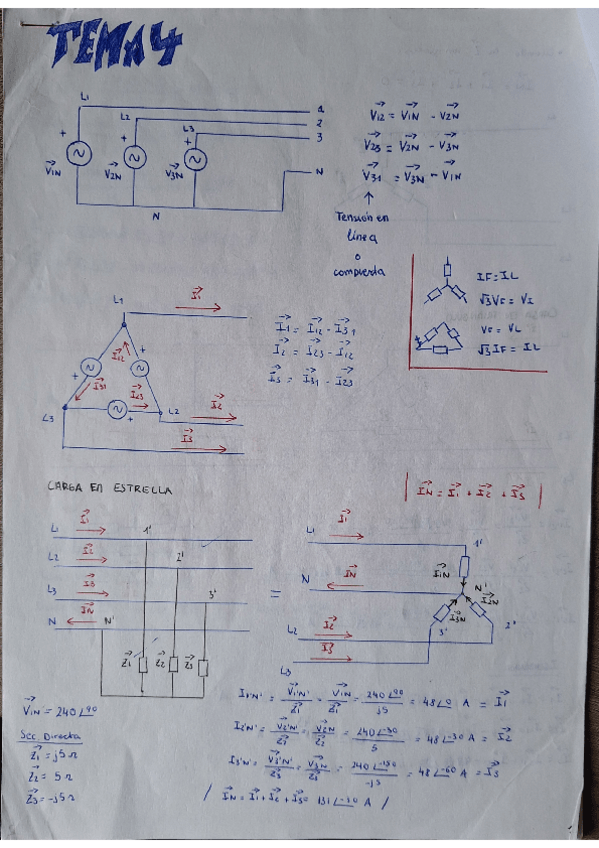 TEMA 4
L1
1
L2
2
L3
3
+
+
+
V1N
V2N
V3N
N
N
V12 = V1N - V2N
V23 = V2N - V3N
V31 = V3N - V1N
↑
Tensión en
línea
o
compuesta
IF = IL
√3 VF = VL
VF = VL
√3 IF = IL
L1
I1
I12
I31
I23
L3
L2
I2
I3
I1 = I12 - I31
I2 = I23 - I12
I3 = I31 - I23
CARGA EN ESTRELLA
| IN = I1 + I2 + I3 |
L1
I1
1'
L2
I2
2'
L3
I3
3'
N
IN
N'
Z1
Z2
Z3
=
L1
I1
1'
I1N
N
IN
N'
I2N
I3N
L2
I2
3'
2'
I3
L3
V1N = 240∠90
Sec. Directa
Z1 = j5Ω
Z2 = 5Ω
Z3 = -j5Ω
I1'N' = V1'N'/Z1 = V1N/Z1 = 240∠90/j5 = 48∠0 A = I1
I2'N' = V2'N'/Z1 = V2N/Z2 = 240∠-30/5 = 48∠-30 A = I2
I3'N' = V3'N'/Z3 = V3N/Z3 = 240∠-150/-j5 = 48∠-60 A = I3
/ IN = I1 + I2 + I3 = 131∠-30 A /